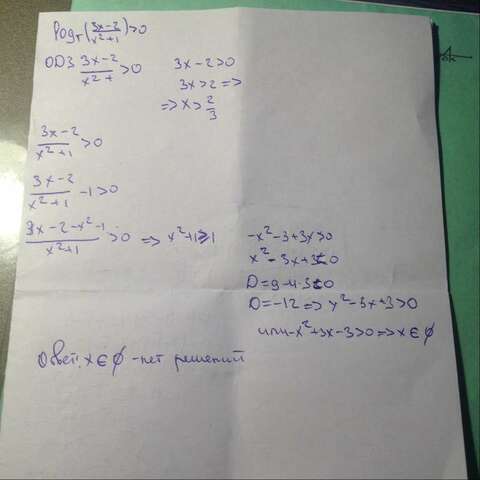 log₇(3x-2/x²+1)>0
ОДЗ 3x-2/x²+ >0
3x-2>0
3x>2 =>
=> x>2/3
3x-2/x²+1 >0
3x-2/x²+1 -1>0
3x-2-x²-1/x²+1 >0 => x²+1≥1
-x²-3+3x>0
x²-3x+3≤0
D=9-4·3≤0
D=-12 => x²-3x+3>0
или -x²+3x-3>0 => x∈∅
Ответ: x∈∅ -нет решений